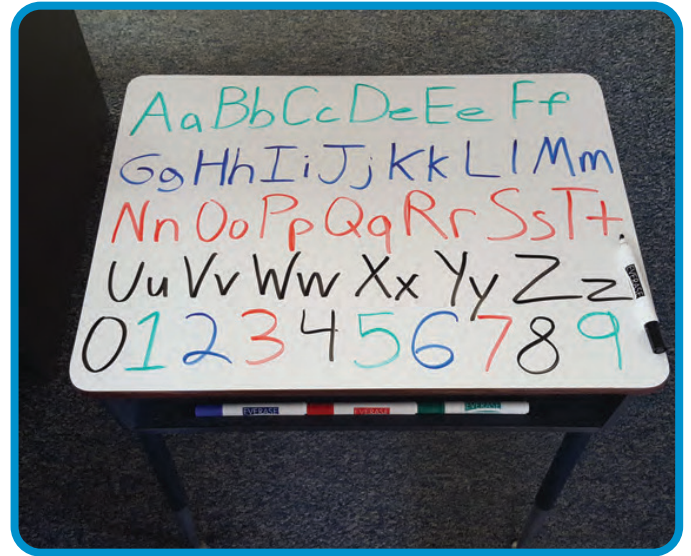 Aa Bb Cc De Ee Ff
Gg Hh Ii Jj Kk Ll Mm
Nn Oo Pp Qq Rr Ss Tt
Uu Vv Ww Xx Yy Zz
EVERASE
0 1 2 3 4 5 6 7 8 9
EVERASE EVERASE EVERASE